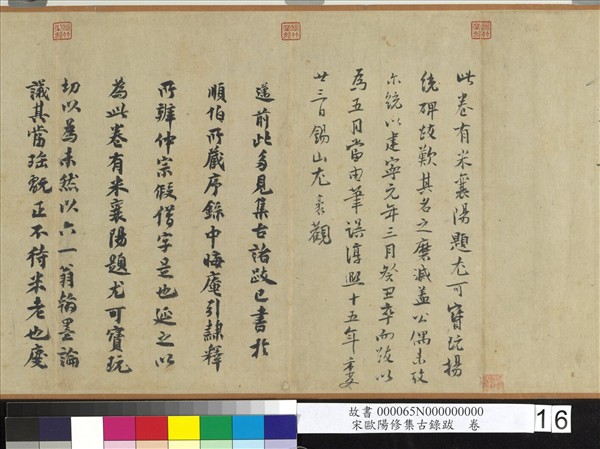 此卷有米襄陽題尤可寶玩楊
統碑跋歎其名之磨滅蓋公偶未攷
尔統以建寧元年三月癸丑卒而跋以
為五月當由筆誤淳熙十五年
廿三日錫山尤袤觀
邁前此多見集古諸跋已書於
順伯所藏序錄中晦庵引隸釋
所辨仲宗假借字是也延之以
為此卷有米襄陽題尤可寶玩
切以為未然以六一翁翰墨論
議其當翫正不待米老也慶
故書 000065N000000000
宋歐陽修集古錄跋 卷
16